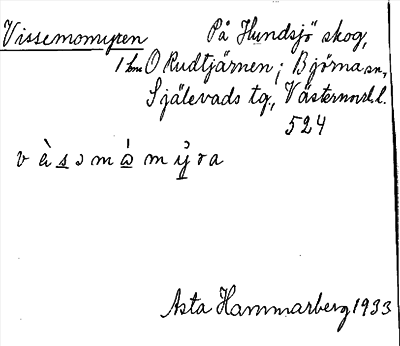 Vissemomyren På Hundsjö skog,
1 km O Rudtjärnen; Björna sn,
Själevads tg, Västernorrl. l.
524
v ὲ s ɔ m ὰ m y̓ r a
Asta Hammarberg 1933